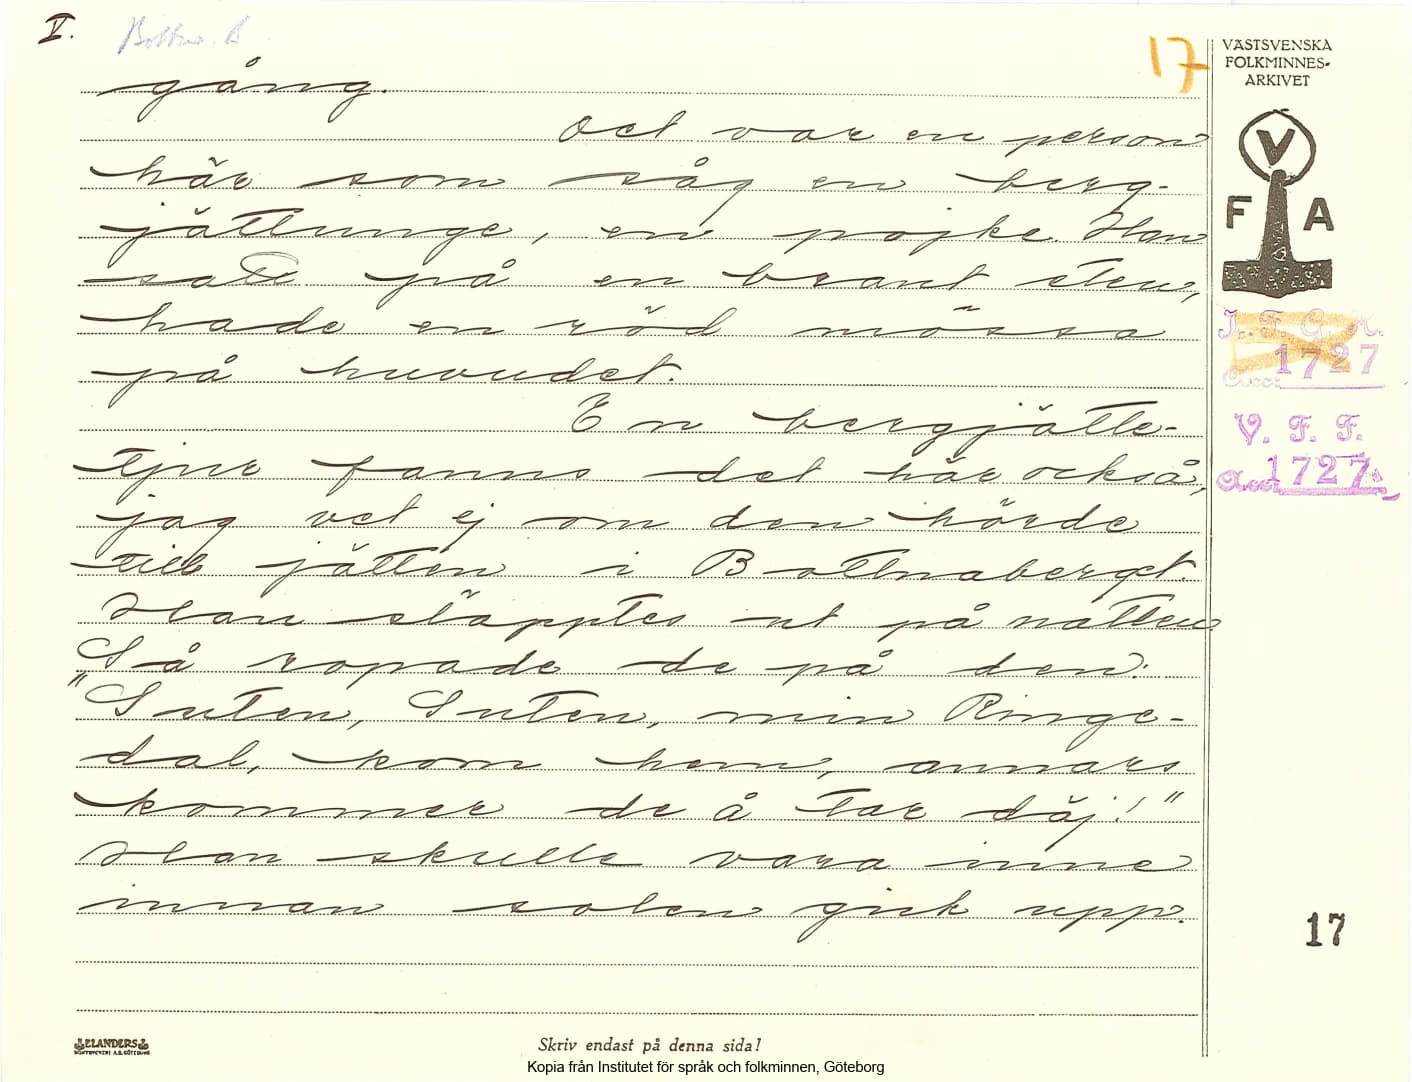 V.
Bottna. B
17
VÄSTSVENSKA
FOLKMINNES-
ARKIVET
V
F A
I. F. G. H.
1727
Acc:
V. F. F.
Acc. 1727
gång.
Det var en person
här som såg en berg-
jätteunge, en pojke. Han
satt på en brant sten,
hade en röd mössa
på huvudet.
En bergjätte-
tjur fanns det här också,
jag vet ej om den hörde
till jätten i Bottnaberget.
Han släpptes ut på natten.
Så ropade de på den:
"Suten, Suten, min Ringe-
dal, kom hem, annars
kommer de å tar däj!"
Han skulle vara inne
innan solen gick upp.
17
ELANDERS
BOKTRYCKERI A.B. GÖTEBORG
Skriv endast på denna sida!
Kopia från Institutet för språk och folkminnen, Göteborg